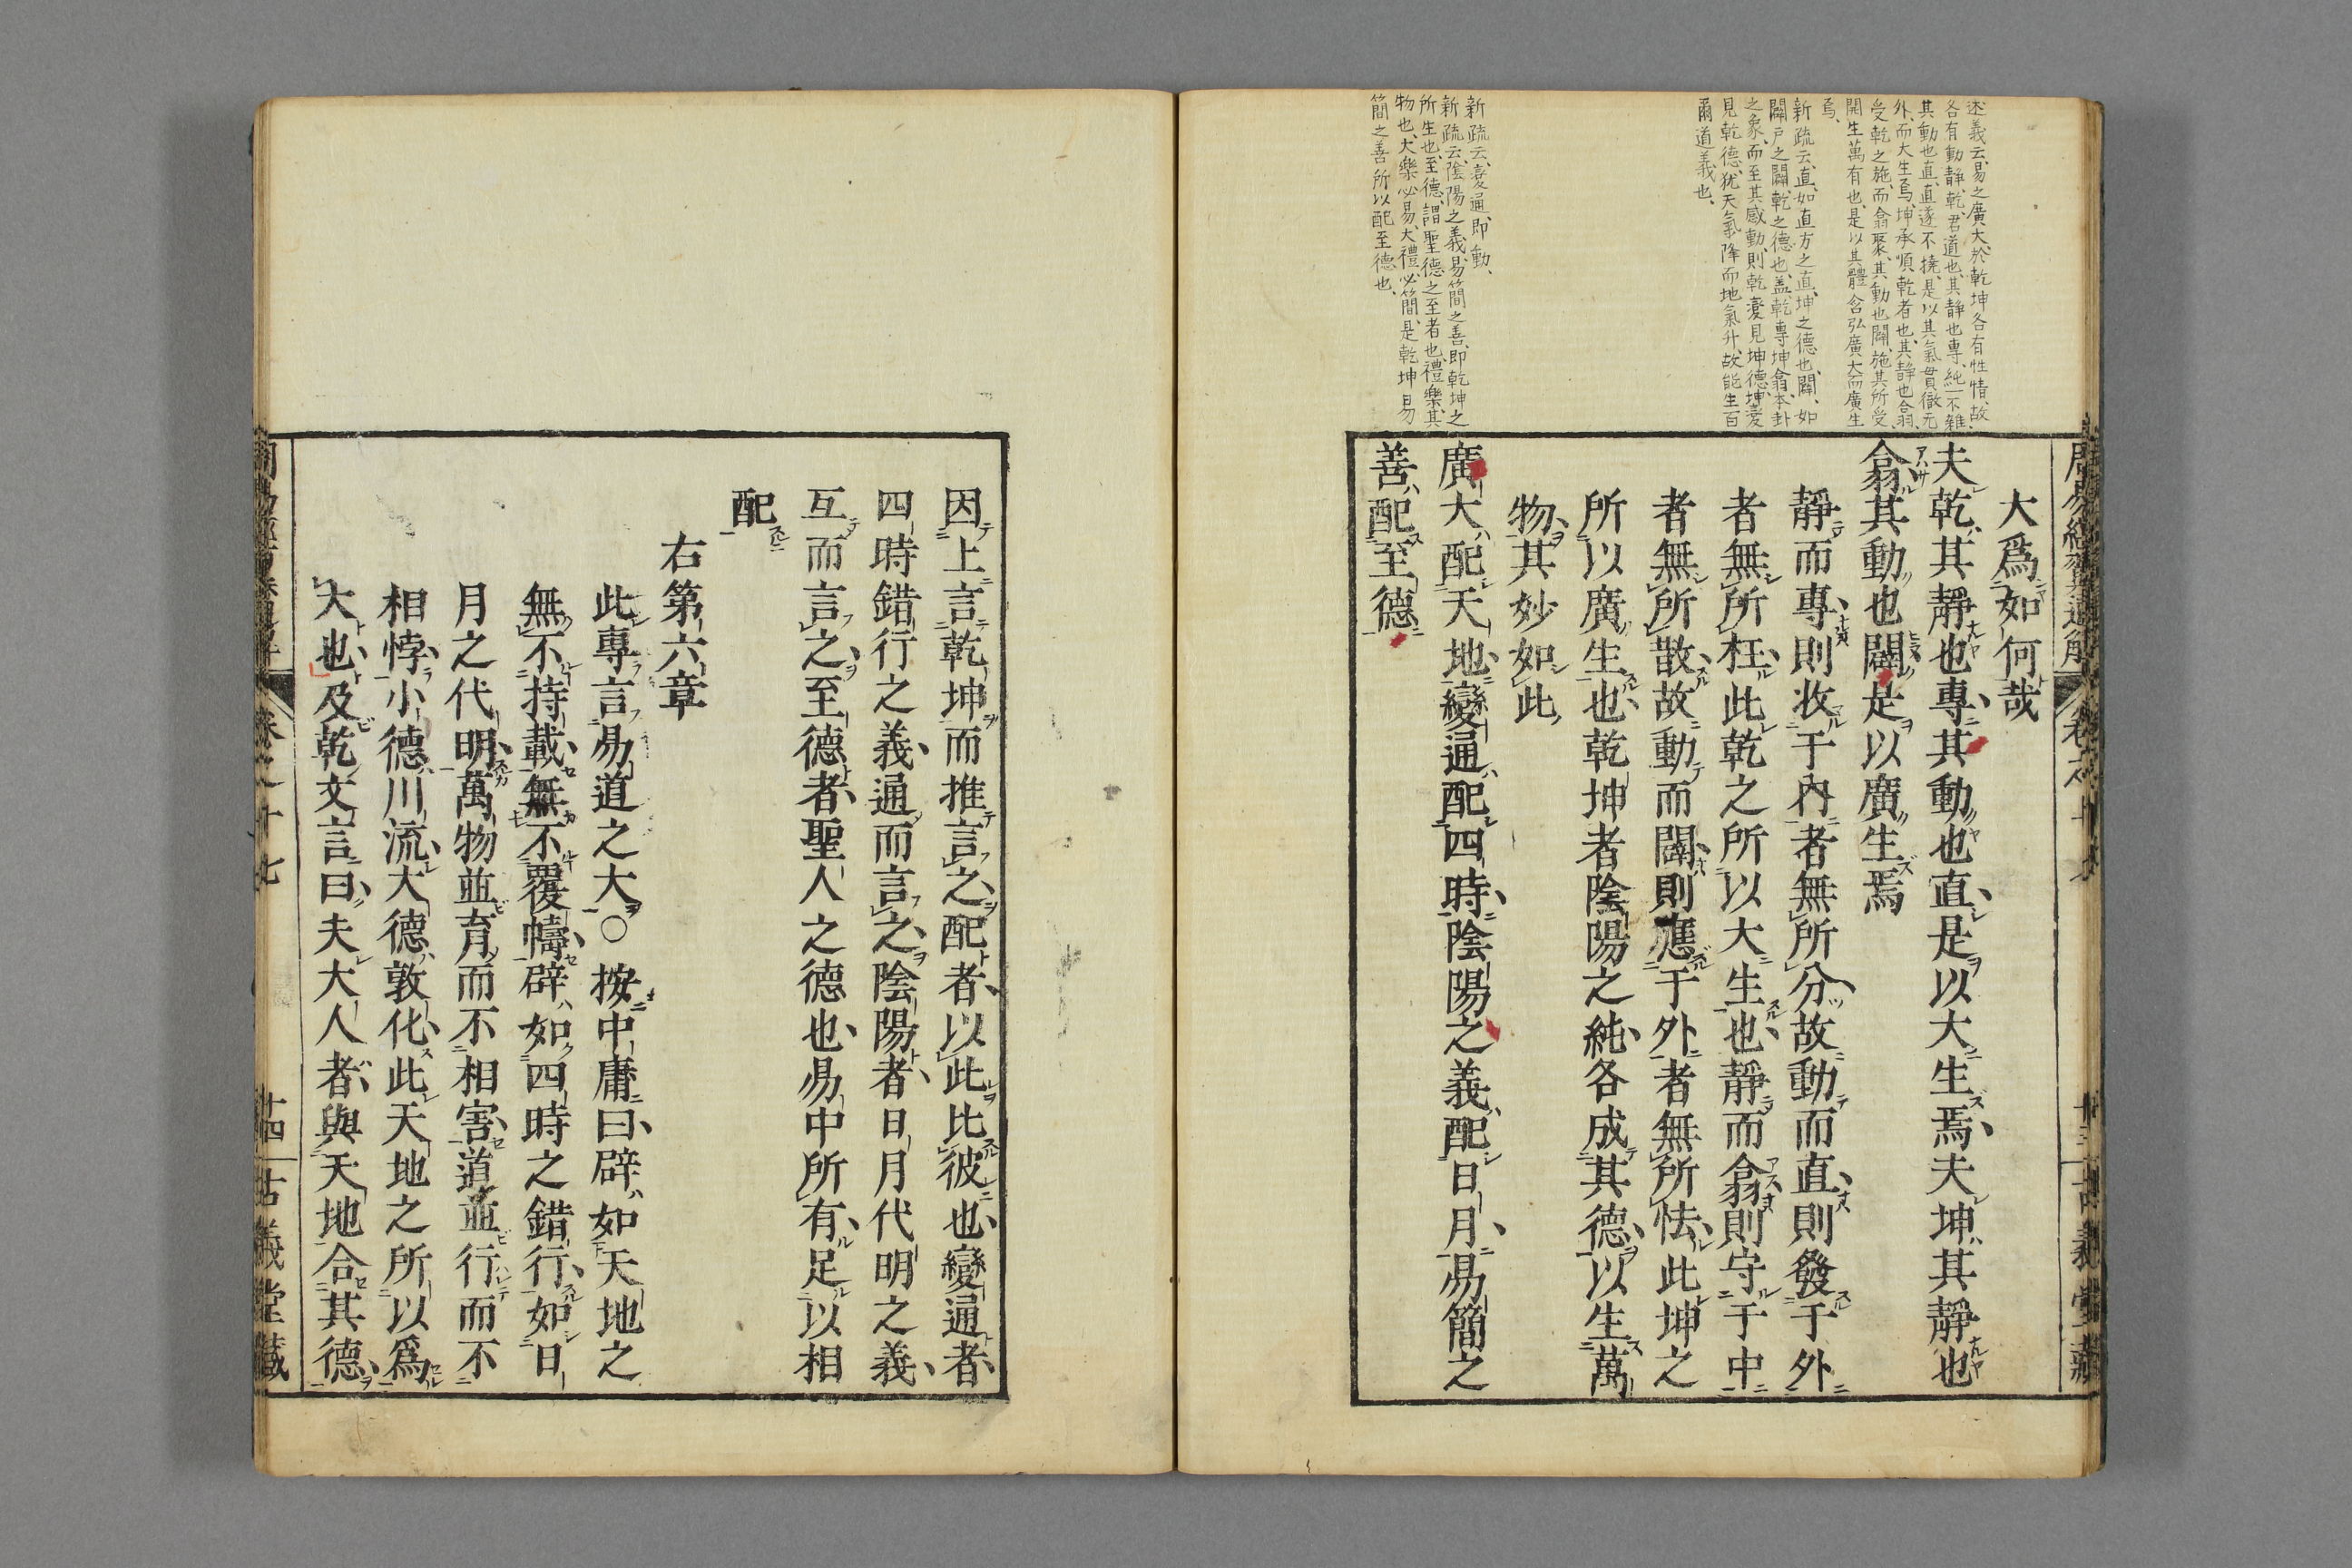 述義云、易之廣大、於乾坤各有性情、故
各有動靜、乾、君道也、其靜也專、純一不雜、
其動也直、直遂不撓、是以其氣貫徹无
外、而大生焉、坤承順乾者也、其靜也翕、
受乾之施、而翕聚、其動也闢、施其所受、
開生萬有也、是以其體含弘廣大而廣生
焉、
新疏云、直、如直方之直、坤之德也、闢、如
闢戸之闢、乾之德也、盖乾專坤翕、本卦
之象、而至其感動、則乾變見坤德、坤變
見乾德、犹天氣降而地氣升、故能生百
爾道義也、
新疏云、變通、即動、
新疏云、陰陽之義、易簡之善、即乾坤之
所生也、至德、謂聖德之至者也、禮樂、其
物也、大樂必易、大禮必簡、是乾坤易
簡之善所以配至德也、
大爲如何哉
夫乾其靜也專其動也直是以大生焉夫坤其靜也
翕其動也闢是以廣生焉
靜而專則收于內者無所分故動而直則發于外
者無所枉此乾之所以大生也靜而翕則守于中
者無所散故動而闢則應于外者無所怯此坤之
所以廣生也乾坤者陰陽之純各成其德以生萬
物其妙如此
廣大配天地變通配四時陰陽之義配日月易簡之
善配至德
因上言乾坤而推言之配者以此比彼也變通者
四時錯行之義通而言之陰陽者日月代明之義
互而言之至德者聖人之德也易中所有足以相
配
右第六章
此專言易道之大○按中庸曰辟如天地之
無不持載無不覆幬辟如四時之錯行如日
月之代明萬物並育而不相害道並行而不
相悖小德川流大德敦化此天地之所以爲
大也及乾文言曰夫大人者與天地合其德
卷之十七
十四
古義堂藏